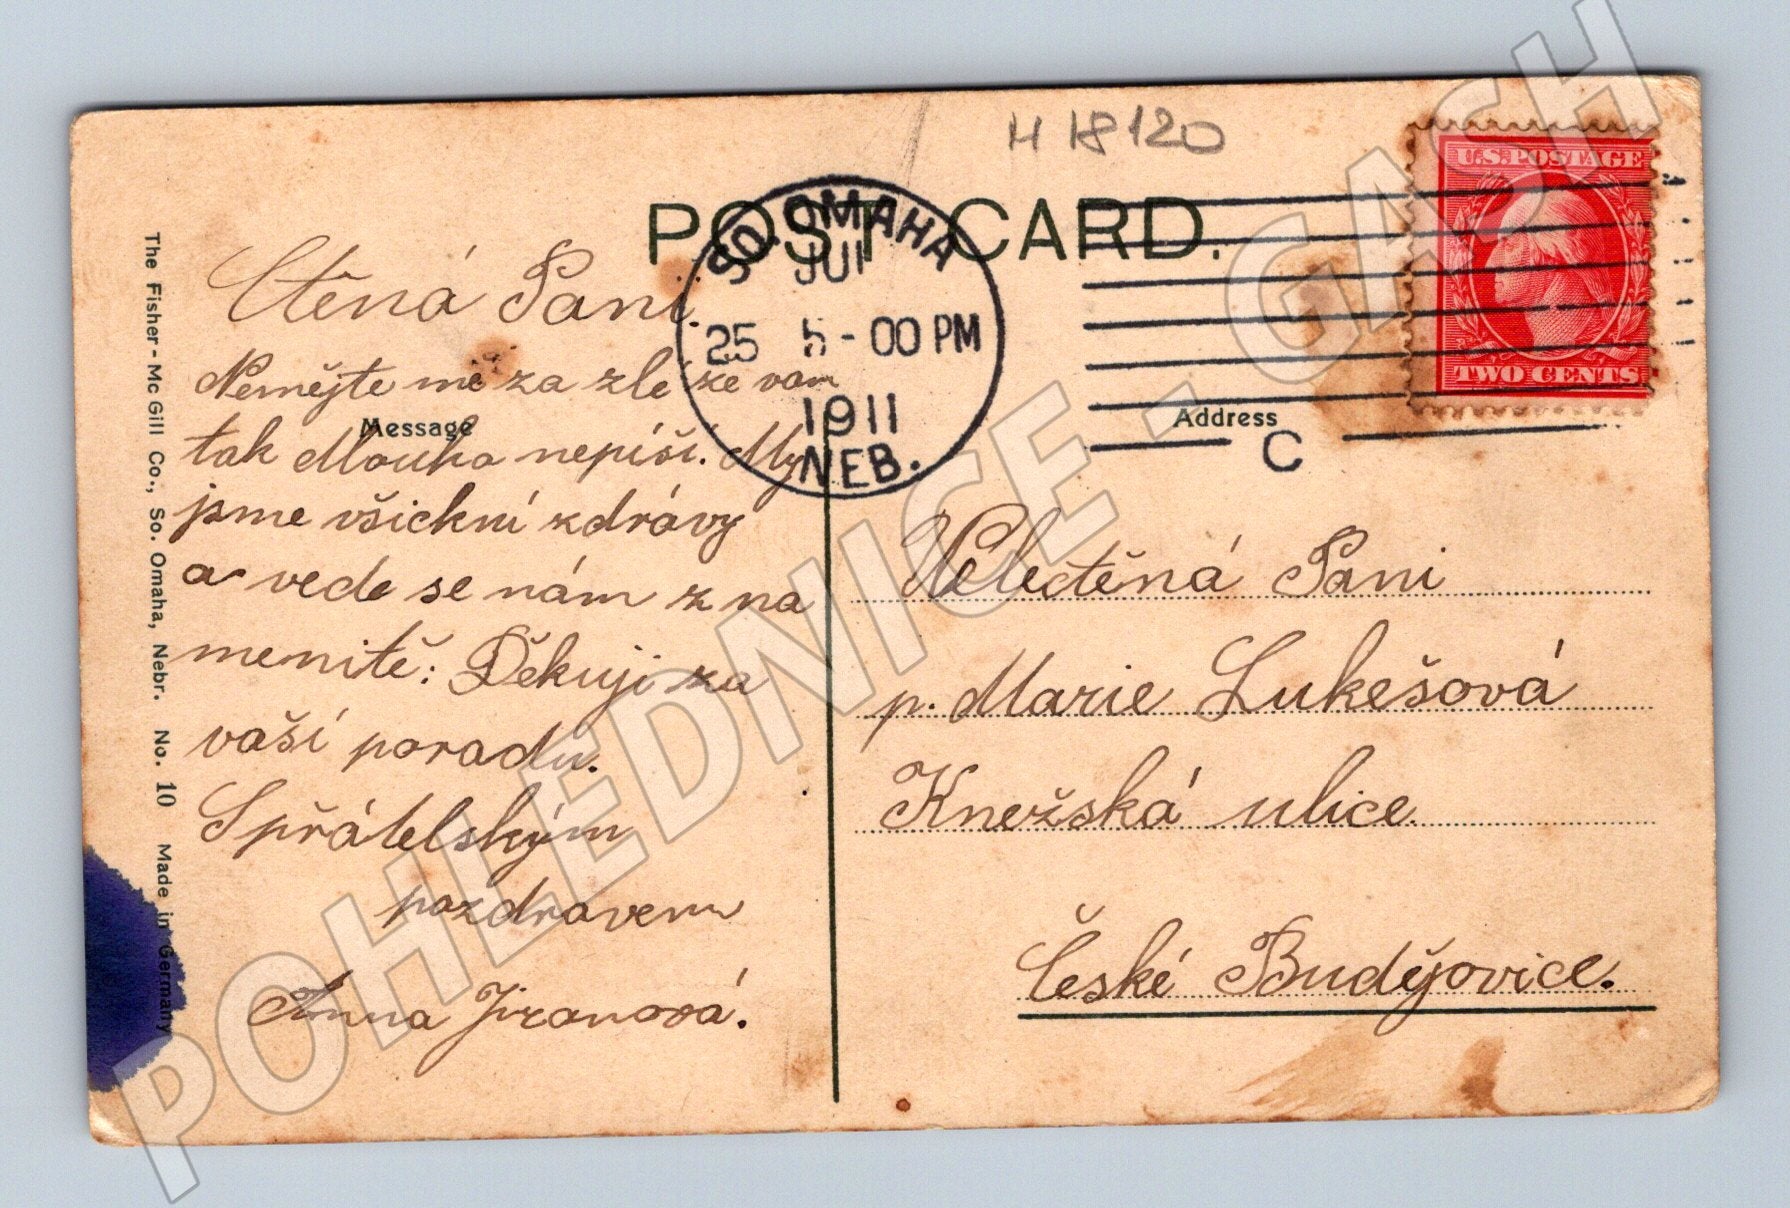 H 18120
POST CARD.
SO. OMAHA
JUL
25 5-00 PM
1911
NEB.
C
U.S. POSTAGE
TWO CENTS
Message
Address
Ctěná Paní.
Nemějte mě za zlé že vam
tak dlouho nepíší. My
jsme všickni zdrávy
a vede se nám zna
menitě: Děkuji za
vaší poradu.
Spřátelským
pozdravem
Anna Jiranová.
Velectěná Paní
p. Marie Lukešová
Knežská ulice
České Budějovice.
The Fisher-Mc Gill Co., So. Omaha, Nebr. No. 10 Made in Germany
POHLEDNICE - GASH